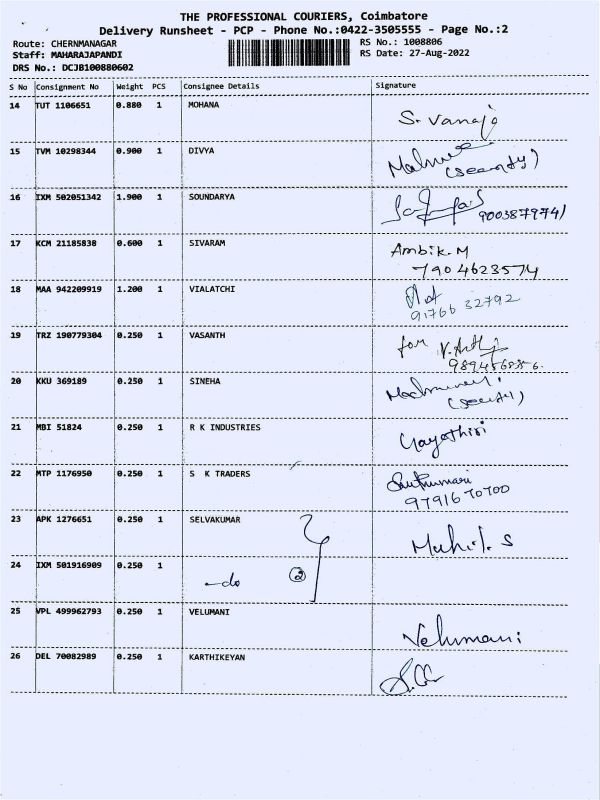 THE PROFESSIONAL COURIERS, Coimbatore
Delivery Runsheet - PCP - Phone No.:0422-3505555 - Page No.:2
Route: CHERNMANAGAR RS No.: 1008806
Staff: MAHARAJAPANDI RS Date: 27-Aug-2022
DRS No.: DCJB100880602
S No Consignment No Weight PCS Consignee Details Signature
14 TUT 1106651 0.880 1 MOHANA
S. Vanaja
15 TVM 10298344 0.900 1 DIVYA
(Security)
16 IXM 502051342 1.900 1 SOUNDARYA
17 KCM 21185838 0.600 1 SIVARAM
Ambik. M
7904623574
18 MAA 942209919 1.200 1 VIALATCHI
91766 32792
19 TRZ 190779304 0.250 1 VASANTH
for
20 KKU 369189 0.250 1 SINEHA
(Security)
21 MBI 51824 0.250 1 R K INDUSTRIES
Gayathiri
22 MTP 1176950 0.250 1 S K TRADERS
97916 70700
23 APK 1276651 0.250 1 SELVAKUMAR
24 IXM 501916909 0.250 1
-do 2
25 VPL 499962793 0.250 1 VELUMANI
Velumani
26 DEL 70082989 0.250 1 KARTHIKEYAN